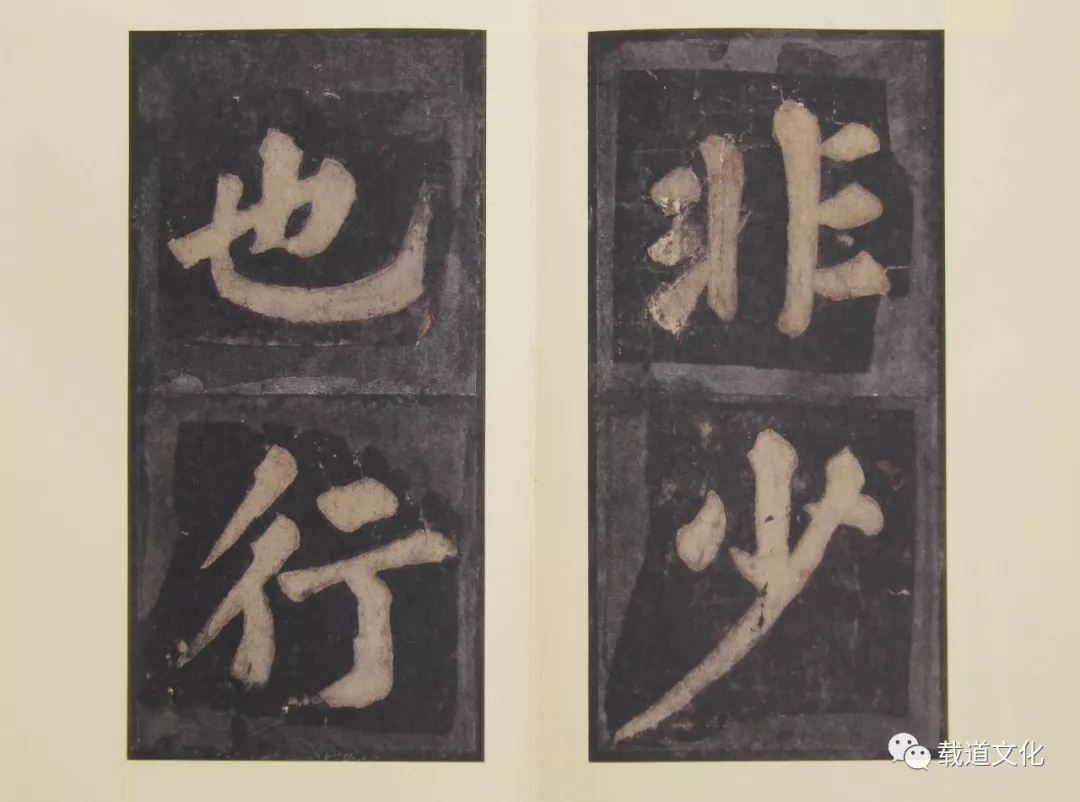 非少
也行
载道文化